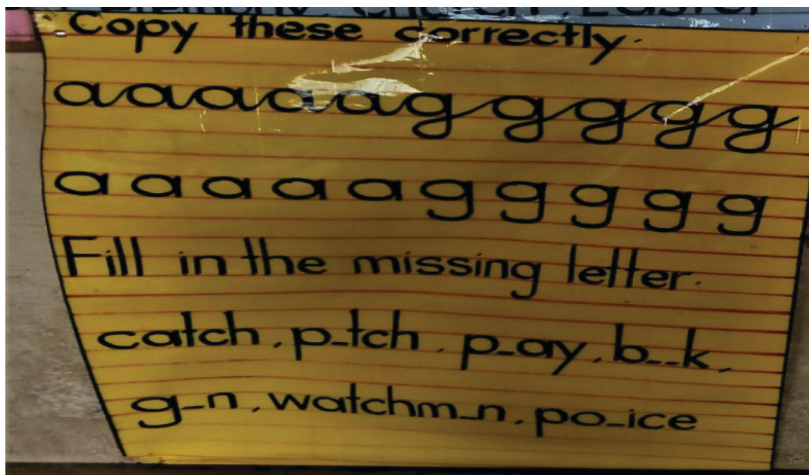 Church, Easter
Copy these correctly.
aaaaaggggg
a a a a a g g g g g
Fill in the missing letter.
catch, p_tch, p_ay, b__k,
g_n, watchm_n, po_ice